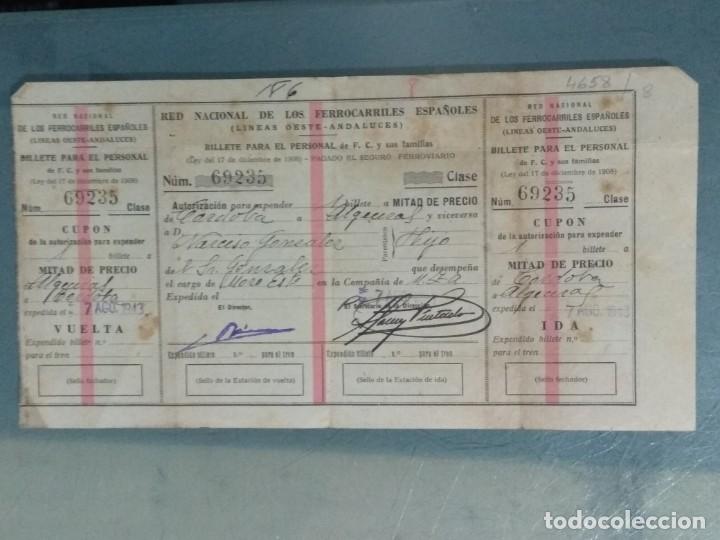 186
4658
8
RED NACIONAL
DE LOS FERROCARRILES ESPAÑOLES
(LINEAS OESTE-ANDALUCES)
BILLETE PARA EL PERSONAL
de F. C. y sus familias
(Ley del 17 de diciembre de 1908)
69235
Núm. Clase
CUPON
de la autorización para expender
1 billete a
MITAD DE PRECIO
de Algeciras
a Cordoba
expedida el 7 AGO. 1943
VUELTA
Expendido billete n.º
para el tren
(Sello fechador)
RED NACIONAL DE LOS FERROCARRILES ESPAÑOLES
(LINEAS OESTE-ANDALUCES)
BILLETE PARA EL PERSONAL de F. C. y sus familias
(Ley del 17 de diciembre de 1908) - PAGADO EL SEGURO FERROVIARIO
Núm. 69235 Clase
Autorización para expender 1 billete a MITAD DE PRECIO
de Cordoba a Algeciras y viceversa
a D. Narciso Gonzalez Parentesco Hijo
de D. Sr. Gonzalez que desempeña
el cargo de en la Compañía de M.Z.A
Expedida el
El Director, El Secretario de la Dirección
Expendido billete n.º para el tren Expendido billete n.º para el tren
(Sello de la Estación de vuelta) (Sello de la Estación de ida)
RED NACIONAL
DE LOS FERROCARRILES ESPAÑOLES
(LINEAS OESTE-ANDALUCES)
BILLETE PARA EL PERSONAL
de F. C. y sus familias
(Ley del 17 de diciembre de 1908)
69235
Núm. Clase
CUPON
de la autorización para expender
1 billete a
MITAD DE PRECIO
de Cordoba
a Algeciras
expedida el 7 AGO. 1943
IDA
Expendido billete n.º
para el tren
(Sello fechador)
todocoleccion
todocoleccion.net